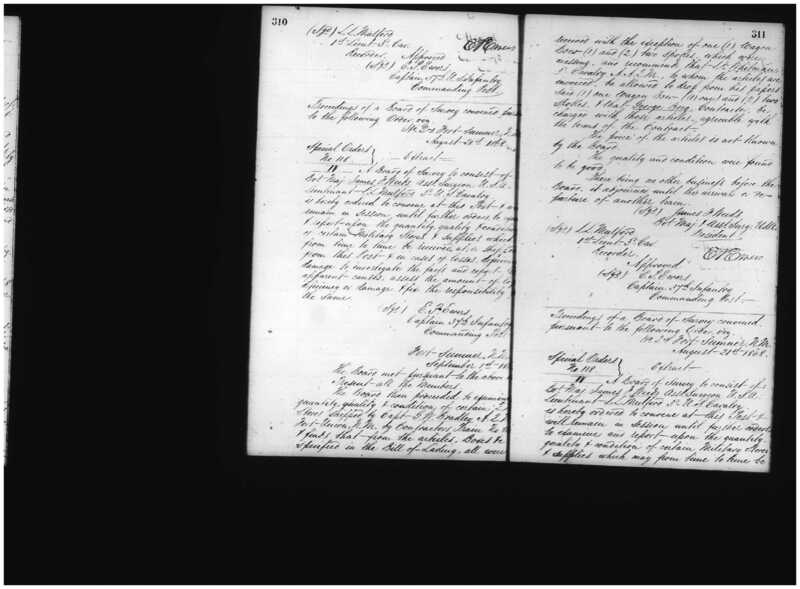 310
(Sgd) L.L. Mulford
1st Lieut 3d Cav.
Recorder.
Approved
(Sgd) E.P. Ewers
Captain 37th U.S. Infantry
Commanding Post.
Proceedings of a Board of Survey convened
to the following Order, viz
Hd Qrs Fort Sumner, N.M.
August 21st 1868
Special Orders
No. 118
Extract
II A Board of Survey to consist of
Bvt Maj James Asst Surgeon U.S.A.
Lieutenant L.L. Mulford 3d U.S. Cavalry
is hereby ordered to convene at this Post &
remain in Session until further orders to
& report upon the quantity quality & condition
of certain Military Stores & Supplies which
from time to time be received at or shipped
from this Post & in cases of losses
damage to investigate the facts and report
apparent causes, assess the amount of
deficiency or damage & fix the responsibility
the same.
(Sgd) E.P. Ewers
Captain 37th Infantry
Commanding Post
Fort Sumner, N.M.
September 1st 1868
The Board met pursuant to the above
Present all the Members.
The Board then proceeded to examine
quantity, quality & condition of certain
Stores Shipped by Capt. Bradley A.Q.M.
Fort Union N.M. by Contractors Train No
& finds that from the articles, Boxes &c
specified in the Bill of Lading, all were
311
received with the exception of one (1) Wagon
Cover (1) and (2) two Spokes, which were
missing, and recommend that Lt.
3d Cavalry A.A.Q.M. to whom the articles are
invoiced be allowed to drop from his papers
said (1) one Wagon (1) one and (2) two
Spokes, & that George Berg, Contractor, be
charged with those articles, agreeable with
the terms of the Contract.
The price of the articles is not known
by the Board.
The quality and condition were found
to be good.
There being no other business before the
Board, it adjourned until the arrival or de-
parture of another train.
(Sgd) James
Bvt Maj & Asst Surg. U.S.A.
President
(Sgd) L.L. Mulford
1st Lieut 3d Cav
Recorder.
Approved
(Sgd) E.P. Ewers
Captain 37th Infantry
Commanding Post
Proceedings of a Board of Survey convened
pursuant to the following Order, viz.
Hd Qrs Fort Sumner, N.M.
August 21st 1868.
Special Orders
No. 118
Extract
II A Board of Survey to consist of
Bvt Maj James Asst Surgeon U.S.A.
Lieutenant L.L. Mulford 3d U.S. Cavalry
is hereby ordered to convene at this Post &
will remain in Session until further orders
to examine and report upon the quantity
quality & condition of certain Military Stores
& supplies which may from time to time be